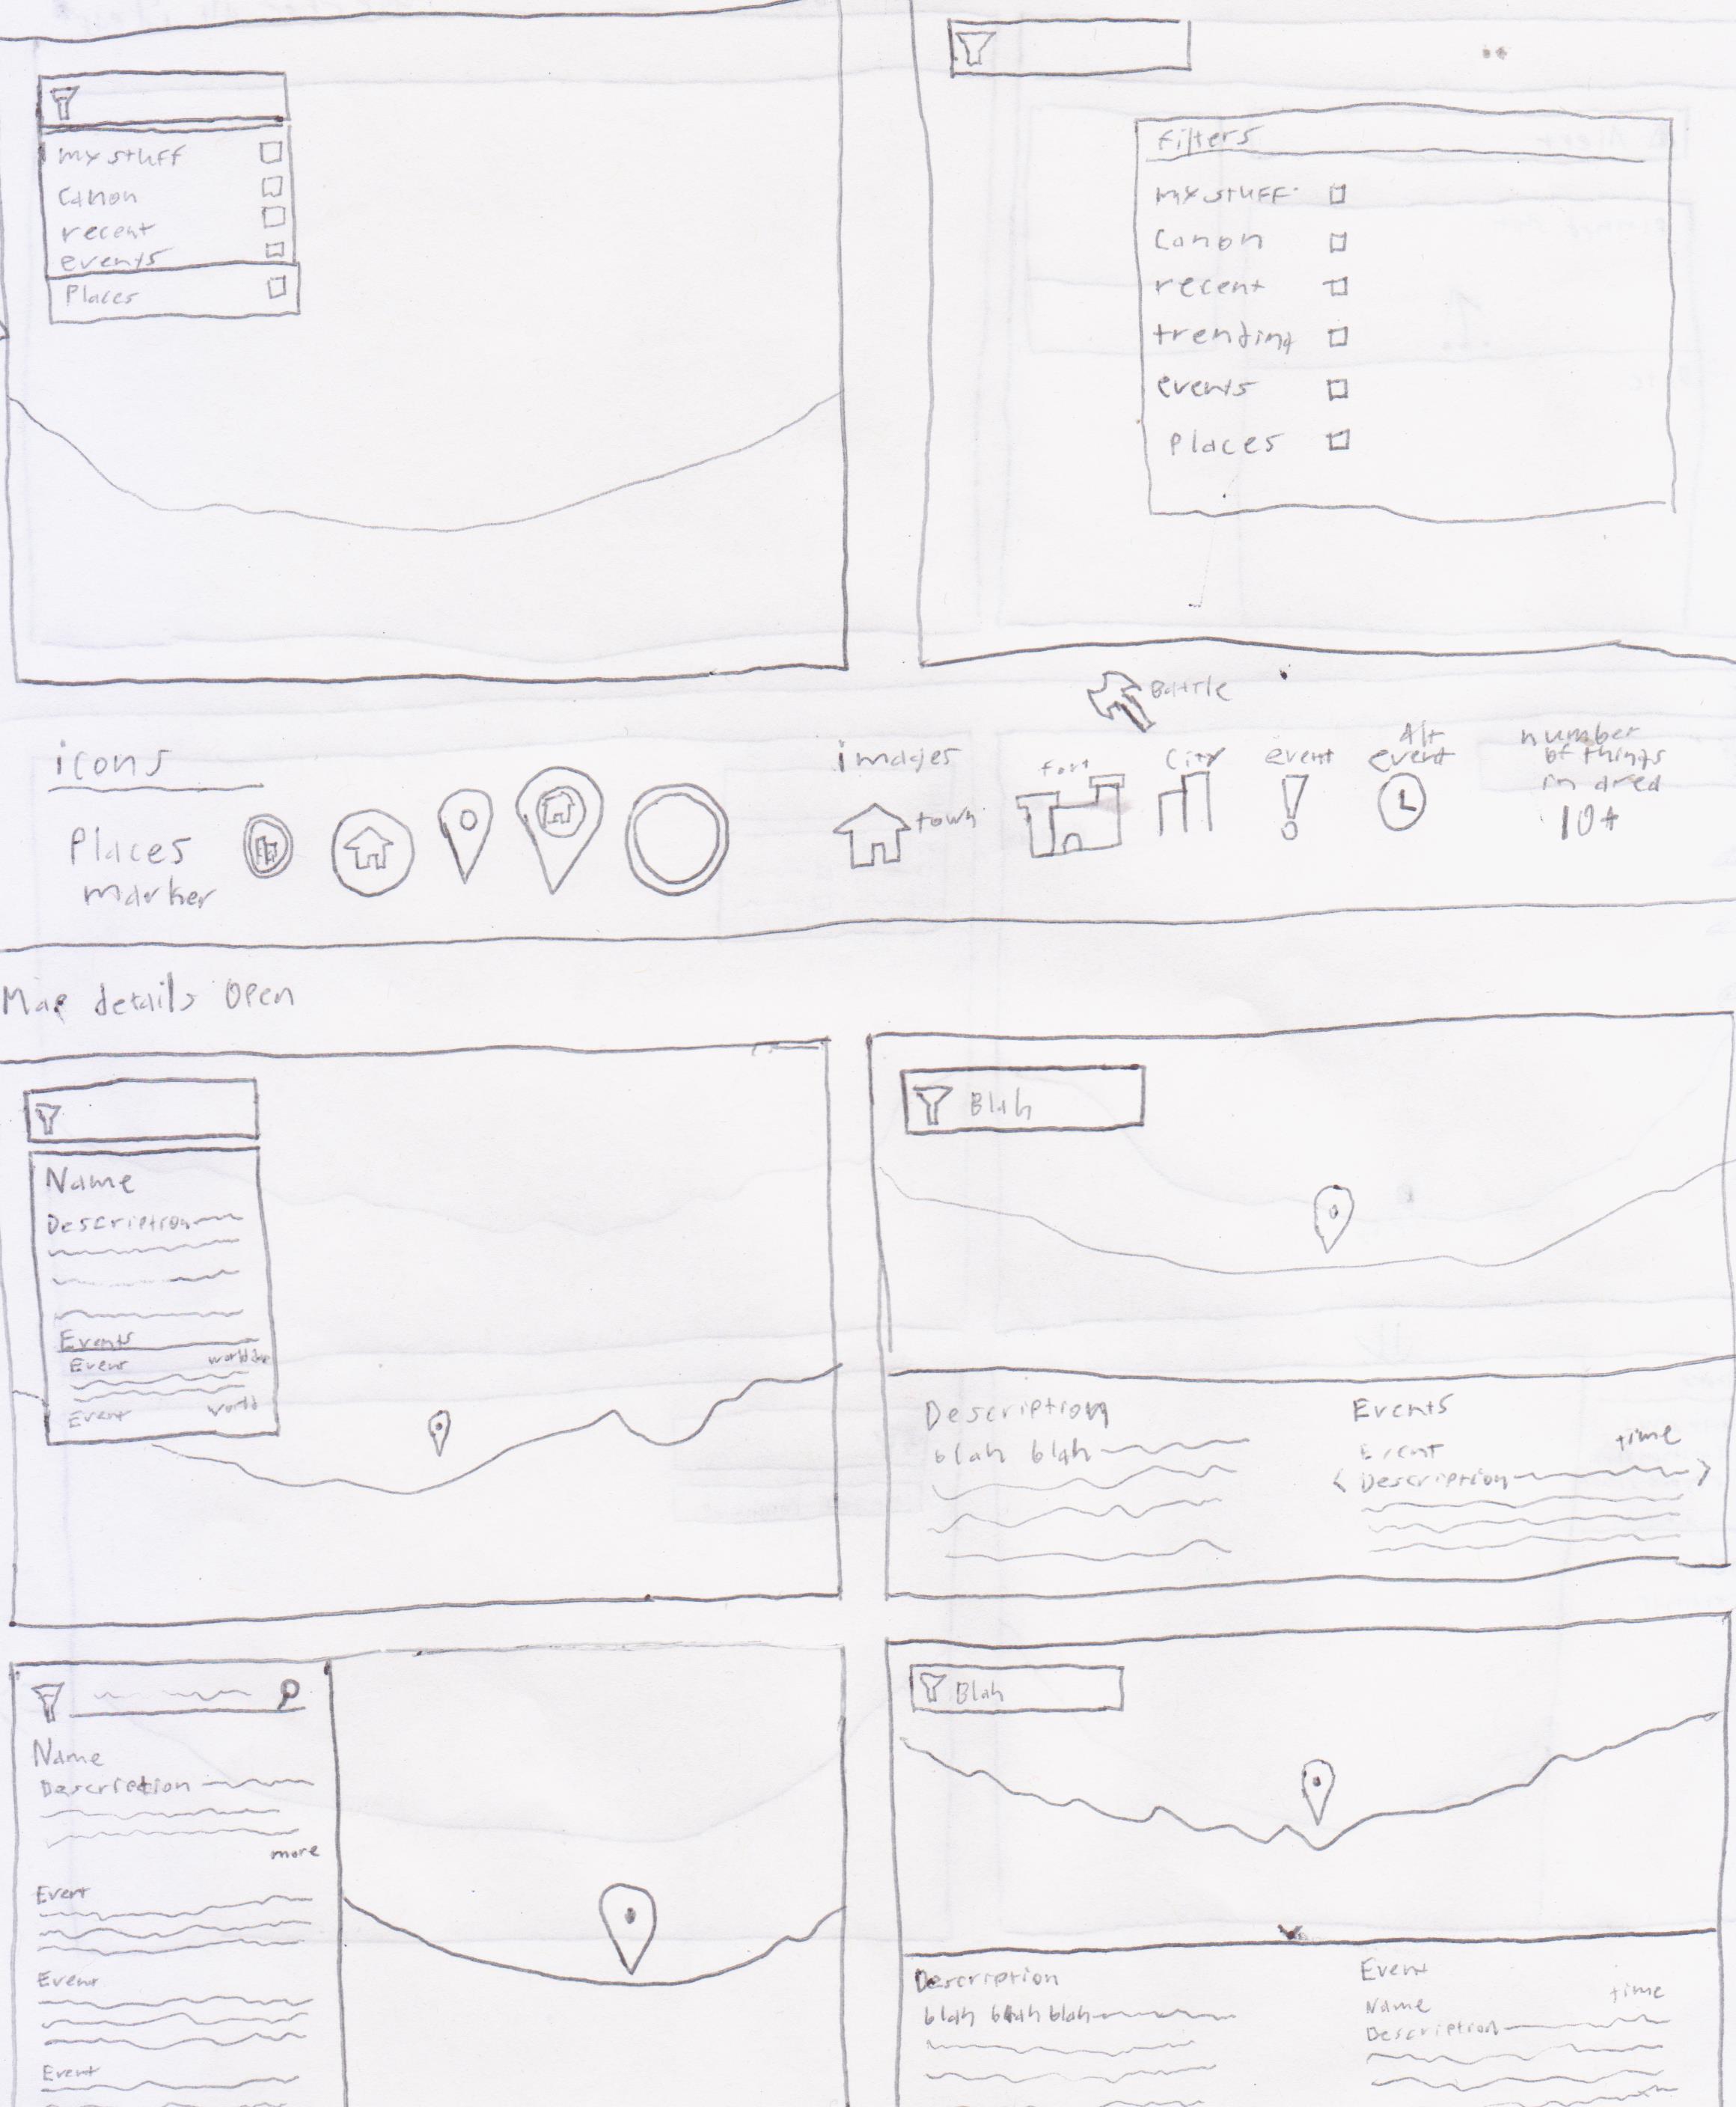 my stuff
canon
recent
events
Places
filters
my stuff
Canon
recent
trending
events
Places
Battle
icons
images
fort
City
event
Alt
event
number
of things
in area
10+
town
Places
marker
Map details Open
Name
Description
Events
Event
Event world
Blah
Description
blah blah
Events
Event time
< Description >
Name
Description
more
Event
Event
Event
Blah
Description
blah blah blah
Event
Name time
Description